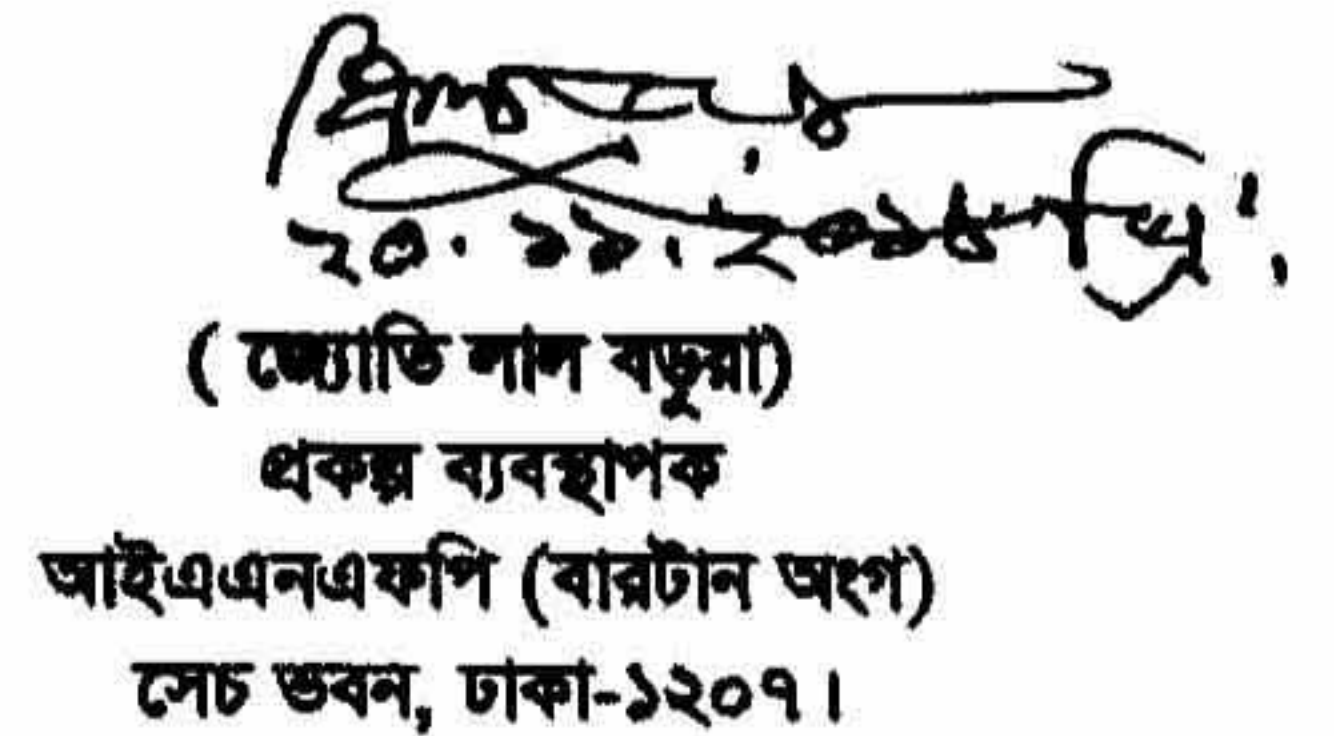 ২০.১১.২০১৬ খ্রি.
( জ্যোতি লাল বড়ুয়া)
প্রকল্প ব্যবস্থাপক
আইএএনএফপি (বারটান অংগ)
সেচ ভবন, ঢাকা-১২০৭।